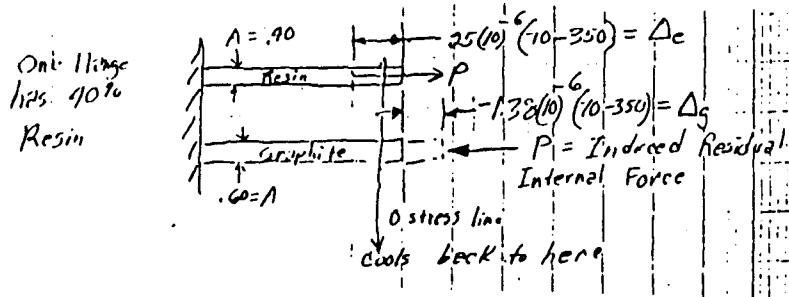 One Hinge
has 40%
Resin
A = .40
Resin
25(10)⁻⁶(-10-350) = Δe
P
-1.38(10)⁻⁶(-10-350) = Δg
Graphite
P = Induced Residual
Internal Force
.60=A
0 stress line
cools back to here